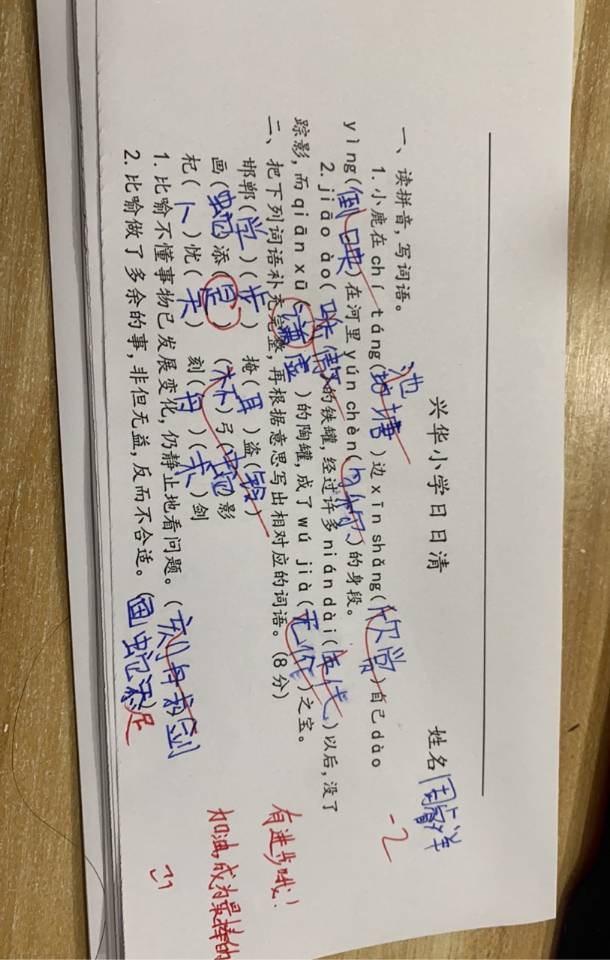 兴华小学日日清
姓名
一、读拼音,写词语。
1.小鹿在chí táng(池塘)边xīn shǎng(欣赏)自己dào
yìng(倒映)在河里yún chèn(匀称)的身段。
2.jiāo ào(骄傲)的铁罐,经过许多nián dài(年代)以后,没了
踪影,而qiān xū(谦虚)的陶罐,成了wú jià(无价)之宝。
二、把下列词语补充完整,再根据意思写出相对应的词语。(8分)
邯郸(学)(步) 掩(耳)盗(铃)
画(蛇)添(足) (杯)弓(蛇)影
杞(人)忧(天) 刻(舟)(求)剑
1.比喻不懂事物已发展变化,仍静止地看问题。(刻舟求剑)
2.比喻做了多余的事,非但无益,反而不合适。(画蛇添足)
-2
有进步哦!
加油,成为最棒的